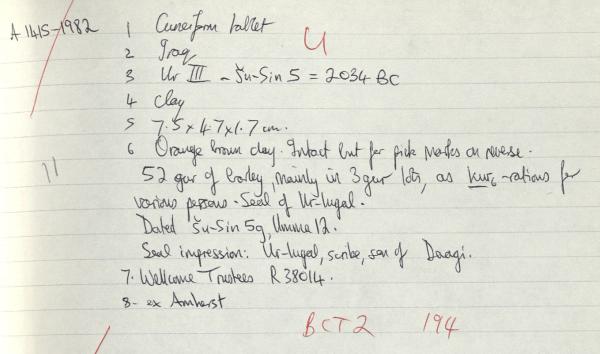 A 1415-1982 1 Cuneiform tablet U
2 Iraq
3 Ur III - Šu-Sin 5 = 2034 BC
4 Clay
5 7.5 x 4.7 x 1.7 cm.
6 Orange brown clay. Intact but for pick marks on reverse.
52 gur of barley, mainly in 3 gur lots, as kur6-rations for
various persons. Seal of Ur-lugal.
Dated Šu-Sin 5g, Umma 12.
Seal impression: Ur-lugal, scribe, son of Daagi.
7. Wellcome Trustees R38014.
8- ex Amherst
BCT 2 194